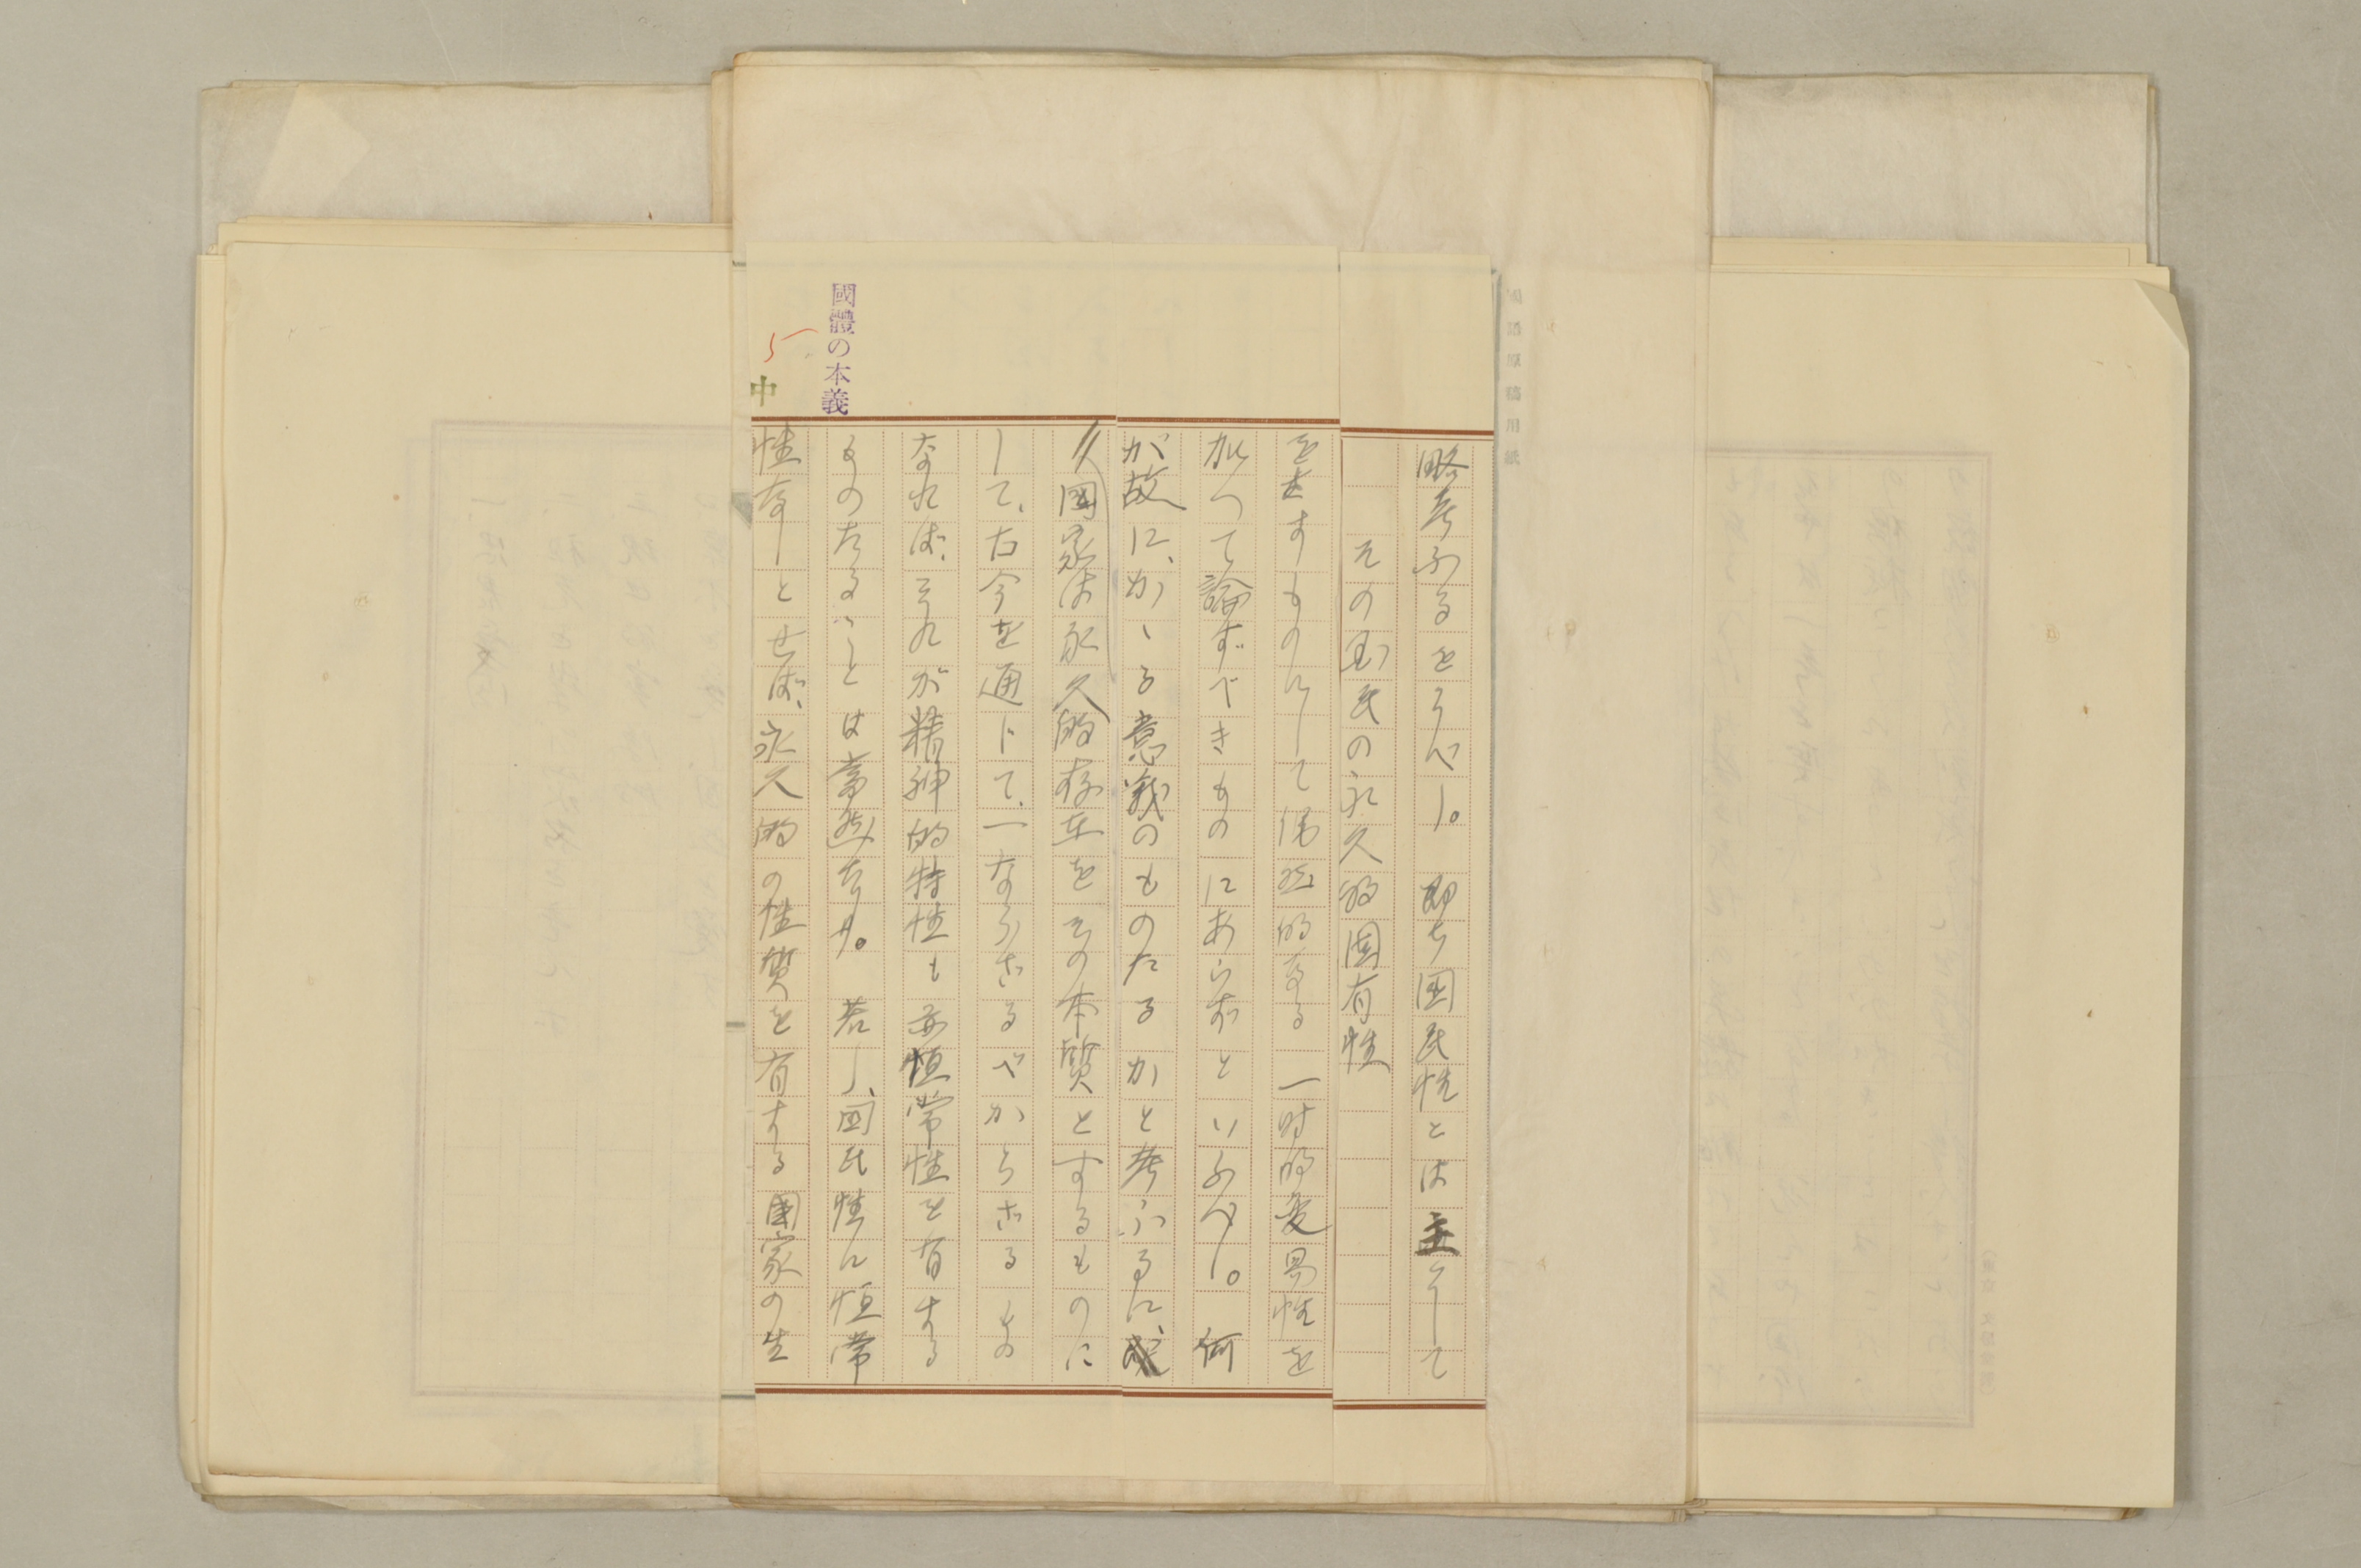 略考ふるをうべし。 即ち国民性とは主として
その国民の永久的固有性
をさすものにして偶然的なる一時的変易性を
加へて論ずべきものにあらずといふべし。 何
が故に、かゝる意義のものたるかと考ふるに、
国家は永久的存在をその本質とするものに
して、古今を通じて、一ならざるべからざるもの
なれば、それが精神的特性も亦恒常性を有する
ものたるべきことは当然なり。 若し、国民性に恒常
性なしとせば、永久的の性質を有する国家の生
國體の本義
5
中